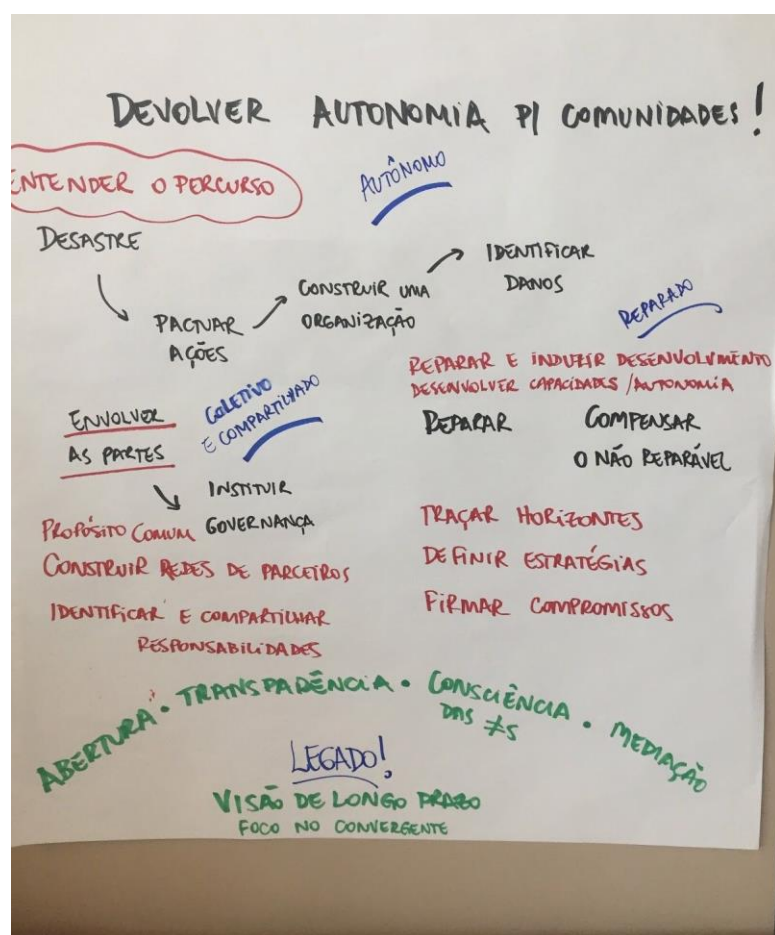 DEVOLVER AUTONOMIA P/ COMUNIDADES!
ENTENDER O PERCURSO
AUTÔNOMO
DESASTRE
IDENTIFICAR
DANOS
CONSTRUIR UMA
ORGANIZAÇÃO
PACTUAR
AÇÕES
REPARADO
REPARAR E INDUZIR DESENVOLVIMENTO
DESENVOLVER CAPACIDADES / AUTONOMIA
REPARAR
COMPENSAR
O NÃO REPARÁVEL
ENVOLVER
AS PARTES
COLETIVO
E COMPARTILHADO
INSTITUIR
GOVERNANÇA
PROPÓSITO COMUM
CONSTRUIR REDES DE PARCEIROS
IDENTIFICAR E COMPARTILHAR
RESPONSABILIDADES
TRAÇAR HORIZONTES
DEFINIR ESTRATÉGIAS
FIRMAR COMPROMISSOS
ABERTURA • TRANSPARÊNCIA • CONSCIÊNCIA
DAS ≠S
• MEDIAÇÃO
LEGADO!
VISÃO DE LONGO PRAZO
FOCO NO CONVERGENTE